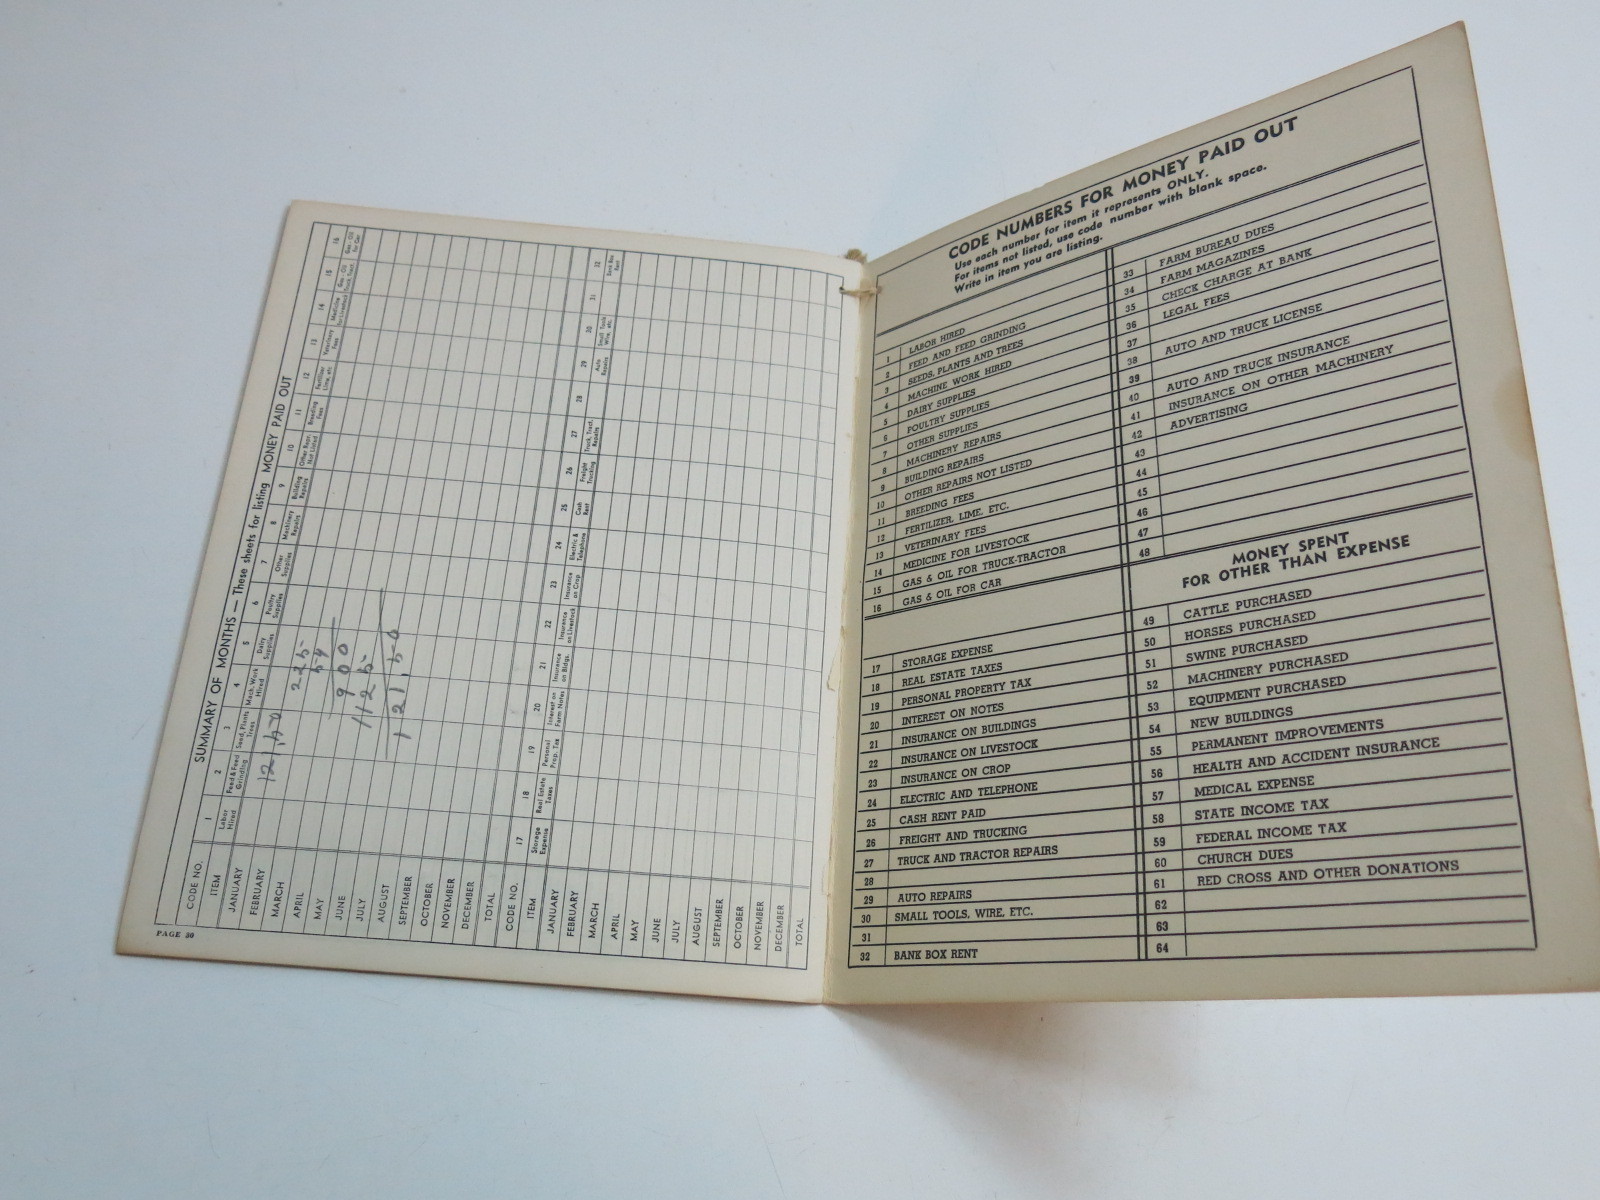 SUMMARY OF MONTHS — These sheets for listing MONEY PAID OUT
CODE NO. 1 2 3 4 5 6 7 8 9 10 11 12 13 14 15 16
ITEM Labor Hired Feed & Feed Grinding Seed, Plants Trees Mach. Work Hired Dairy Supplies Poultry Supplies Other Supplies Machinery Repairs Building Repairs Other Repr. Not Listed Breeding Fees Fertilizer Lime, etc. Veterinary Fees Medicine for Livestock Gas, Oil Truck, Tract. Gas, Oil for Car
JANUARY
FEBRUARY
MARCH
APRIL
MAY
JUNE
JULY
AUGUST
SEPTEMBER
OCTOBER
NOVEMBER
DECEMBER
TOTAL
225
54
900
1125
121.50
CODE NO. 17 18 19 20 21 22 23 24 25 26 27 28 29 30 31 32
ITEM Storage Expense Real Estate Taxes Personal Prop. Tax Interest on Farm Notes Insurance on Bldgs. Insurance on Livestock Insurance on Crop Electric & Telephone Cash Rent Freight Trucking Truck, Tract. Repairs Auto Repairs Small Tools Wire, etc. Bank Box Rent
JANUARY
FEBRUARY
MARCH
APRIL
MAY
JUNE
JULY
AUGUST
SEPTEMBER
OCTOBER
NOVEMBER
DECEMBER
TOTAL
PAGE 30
CODE NUMBERS FOR MONEY PAID OUT
Use each number for item it represents ONLY.
For items not listed, use code number with blank space.
Write in item you are listing.
1 LABOR HIRED
2 FEED AND FEED GRINDING
3 SEEDS, PLANTS AND TREES
4 MACHINE WORK HIRED
5 DAIRY SUPPLIES
6 POULTRY SUPPLIES
7 OTHER SUPPLIES
8 MACHINERY REPAIRS
9 BUILDING REPAIRS
10 OTHER REPAIRS NOT LISTED
11 BREEDING FEES
12 FERTILIZER, LIME, ETC.
13 VETERINARY FEES
14 MEDICINE FOR LIVESTOCK
15 GAS & OIL FOR TRUCK-TRACTOR
16 GAS & OIL FOR CAR
17 STORAGE EXPENSE
18 REAL ESTATE TAXES
19 PERSONAL PROPERTY TAX
20 INTEREST ON NOTES
21 INSURANCE ON BUILDINGS
22 INSURANCE ON LIVESTOCK
23 INSURANCE ON CROP
24 ELECTRIC AND TELEPHONE
25 CASH RENT PAID
26 FREIGHT AND TRUCKING
27 TRUCK AND TRACTOR REPAIRS
28
29 AUTO REPAIRS
30 SMALL TOOLS, WIRE, ETC.
31
32 BANK BOX RENT
33 FARM BUREAU DUES
34 FARM MAGAZINES
35 CHECK CHARGE AT BANK
36 LEGAL FEES
37
38 AUTO AND TRUCK LICENSE
39
40 AUTO AND TRUCK INSURANCE
41 INSURANCE ON OTHER MACHINERY
42 ADVERTISING
43
44
45
46
47
48
MONEY SPENT
FOR OTHER THAN EXPENSE
49 CATTLE PURCHASED
50 HORSES PURCHASED
51 SWINE PURCHASED
52 MACHINERY PURCHASED
53 EQUIPMENT PURCHASED
54 NEW BUILDINGS
55 PERMANENT IMPROVEMENTS
56 HEALTH AND ACCIDENT INSURANCE
57 MEDICAL EXPENSE
58 STATE INCOME TAX
59 FEDERAL INCOME TAX
60 CHURCH DUES
61 RED CROSS AND OTHER DONATIONS
62
63
64